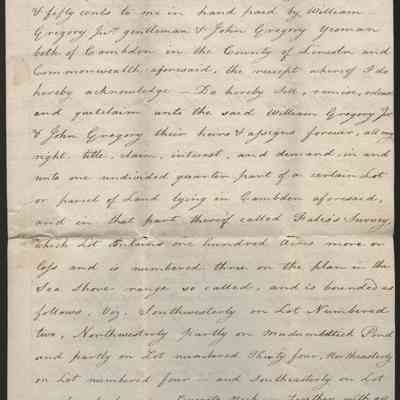 & fifty cents to me in hand paid by William
Gregory Junr gentleman & John Gregory Yeoman
both of Cambden in the County of Lincoln and
Commonwealth aforesaid, the receipt whereof I do
hereby acknowledge — Do hereby sell, remise, release
and quitclaim unto the said William Gregory Jr
& John Gregory their heirs & assigns forever, all my
right, title, claim, interest, and demand, in and
unto one undivided quarter part of a certain Lot
or parcel of Land lying in Cambden aforesaid,
and in that part thereof called Survey,
which Lot Contains one hundred Acres more or
less and is numbered three on the plan in the
Sea Shore range so called, and is bounded as
follows, Viz. Southwesterly on Lot Numbered
two, Northwesterly partly on Pond
and partly on Lot numbered Thirty four, Northeasterly
on Lot numbered four — and Southeasterly on Lot
Neck — Together with all